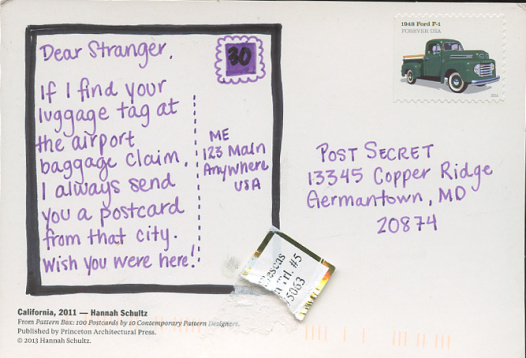 Dear Stranger,
If I find your
luggage tag at
the airport
baggage claim,
I always send
you a postcard
from that city.
Wish you were here!
30
ME
123 Main
Anywhere
USA
1948 Ford F-1
FOREVER USA
POST SECRET
13345 Copper Ridge
Germantown, MD
20874
#5
5063
California, 2011 — Hannah Schultz
From Pattern Box: 100 Postcards by 10 Contemporary Pattern Designers.
Published by Princeton Architectural Press.
© 2013 Hannah Schultz.